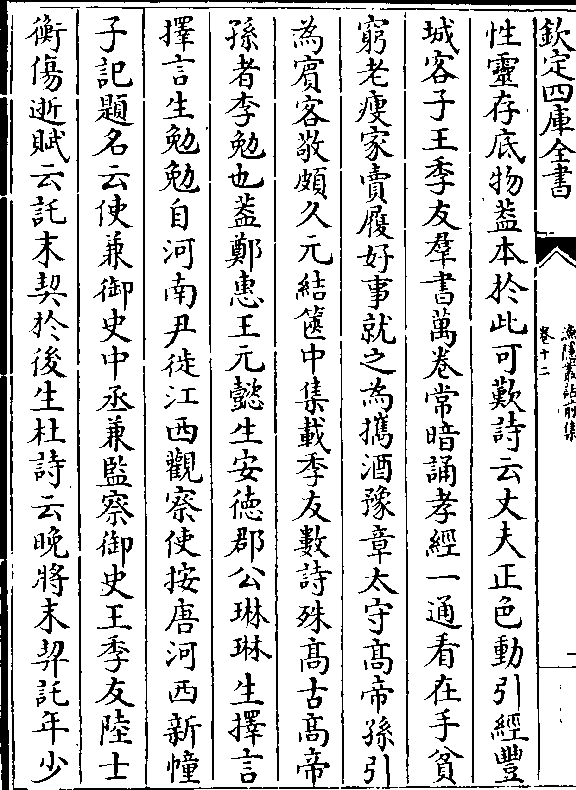 欽定四庫全書
漁隱叢話前集
卷十二
性靈存底物葢本於此可歎詩云丈夫正色動引經豐
城客子王季友羣書萬卷常暗誦孝經一通看在手貧
窮老瘦家賣履好事就之為攜酒豫章太守髙帝孫引
為賓客敬頗久元結篋中集載季友數詩殊髙古髙帝
孫者李勉也葢鄭惠王元懿生安徳郡公琳琳生擇言
擇言生勉勉自河南尹徙江西觀察使按唐河西新幢
子記題名云使兼御史中丞兼監察御史王季友陸士
衡傷逝賦云託末契於後生杜詩云晚將末契託年少